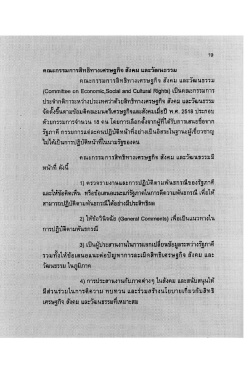 19
คณะกรรมการสิทธิทางเศรษฐกิจ สังคม และวัฒนธรรม
คณะกรรมการสิทธิทางเศรษฐกิจ สังคม และวัฒนธรรม
(Committee on Economic,Social and Cultural Rights) เป็นคณะกรรมการ
ประจำกติการะหว่างประเทศว่าด้วยสิทธิทางเศรษฐกิจ สังคม และวัฒนธรรม
จัดตั้งขึ้นตามข้อมติคณะมนตรีเศรษฐกิจและสังคมเมื่อปี พ.ศ. 2518 ประกอบ
ด้วยกรรมการจำนวน 18 คน โดยการเลือกตั้งจากผู้ที่ได้รับการเสนอชื่อจาก
รัฐภาคี กรรมการแต่ละคนปฏิบัติหน้าที่อย่างเป็นอิสระในฐานะผู้เชี่ยวชาญ
ไม่ได้เป็นการปฏิบัติหน้าที่ในนามรัฐของตน
คณะกรรมการสิทธิทางเศรษฐกิจ สังคม และวัฒนธรรมมี
หน้าที่ ดังนี้
1) ตรวจรายงานผลการปฏิบัติตามพันธกรณีของรัฐภาคี
และให้ข้อคิดเห็น หรือข้อเสนอแนะแก่รัฐภาคีในการตีความพันธกรณี เพื่อให้
สามารถปฏิบัติตามพันธกรณีได้อย่างมีประสิทธิผล
2) ให้ข้อวินิจฉัย (General Comments) เพื่อเป็นแนวทางใน
การปฏิบัติตามพันธกรณี
3) เป็นผู้ประสานงานในการแลกเปลี่ยนข้อมูลระหว่างรัฐภาคี
รวมทั้งให้ข้อเสนอแนะต่อปัญหาการละเมิดสิทธิเศรษฐกิจ สังคม และ
วัฒนธรรม ในภูมิภาค
4) การประสานงานกับภาคต่างๆ ในสังคม และสนับสนุนให้
มีส่วนร่วมในการตีความ ทบทวน และร่วมสร้างนโยบายเกี่ยวกับสิทธิ
เศรษฐกิจ สังคม และวัฒนธรรมที่เหมาะสม